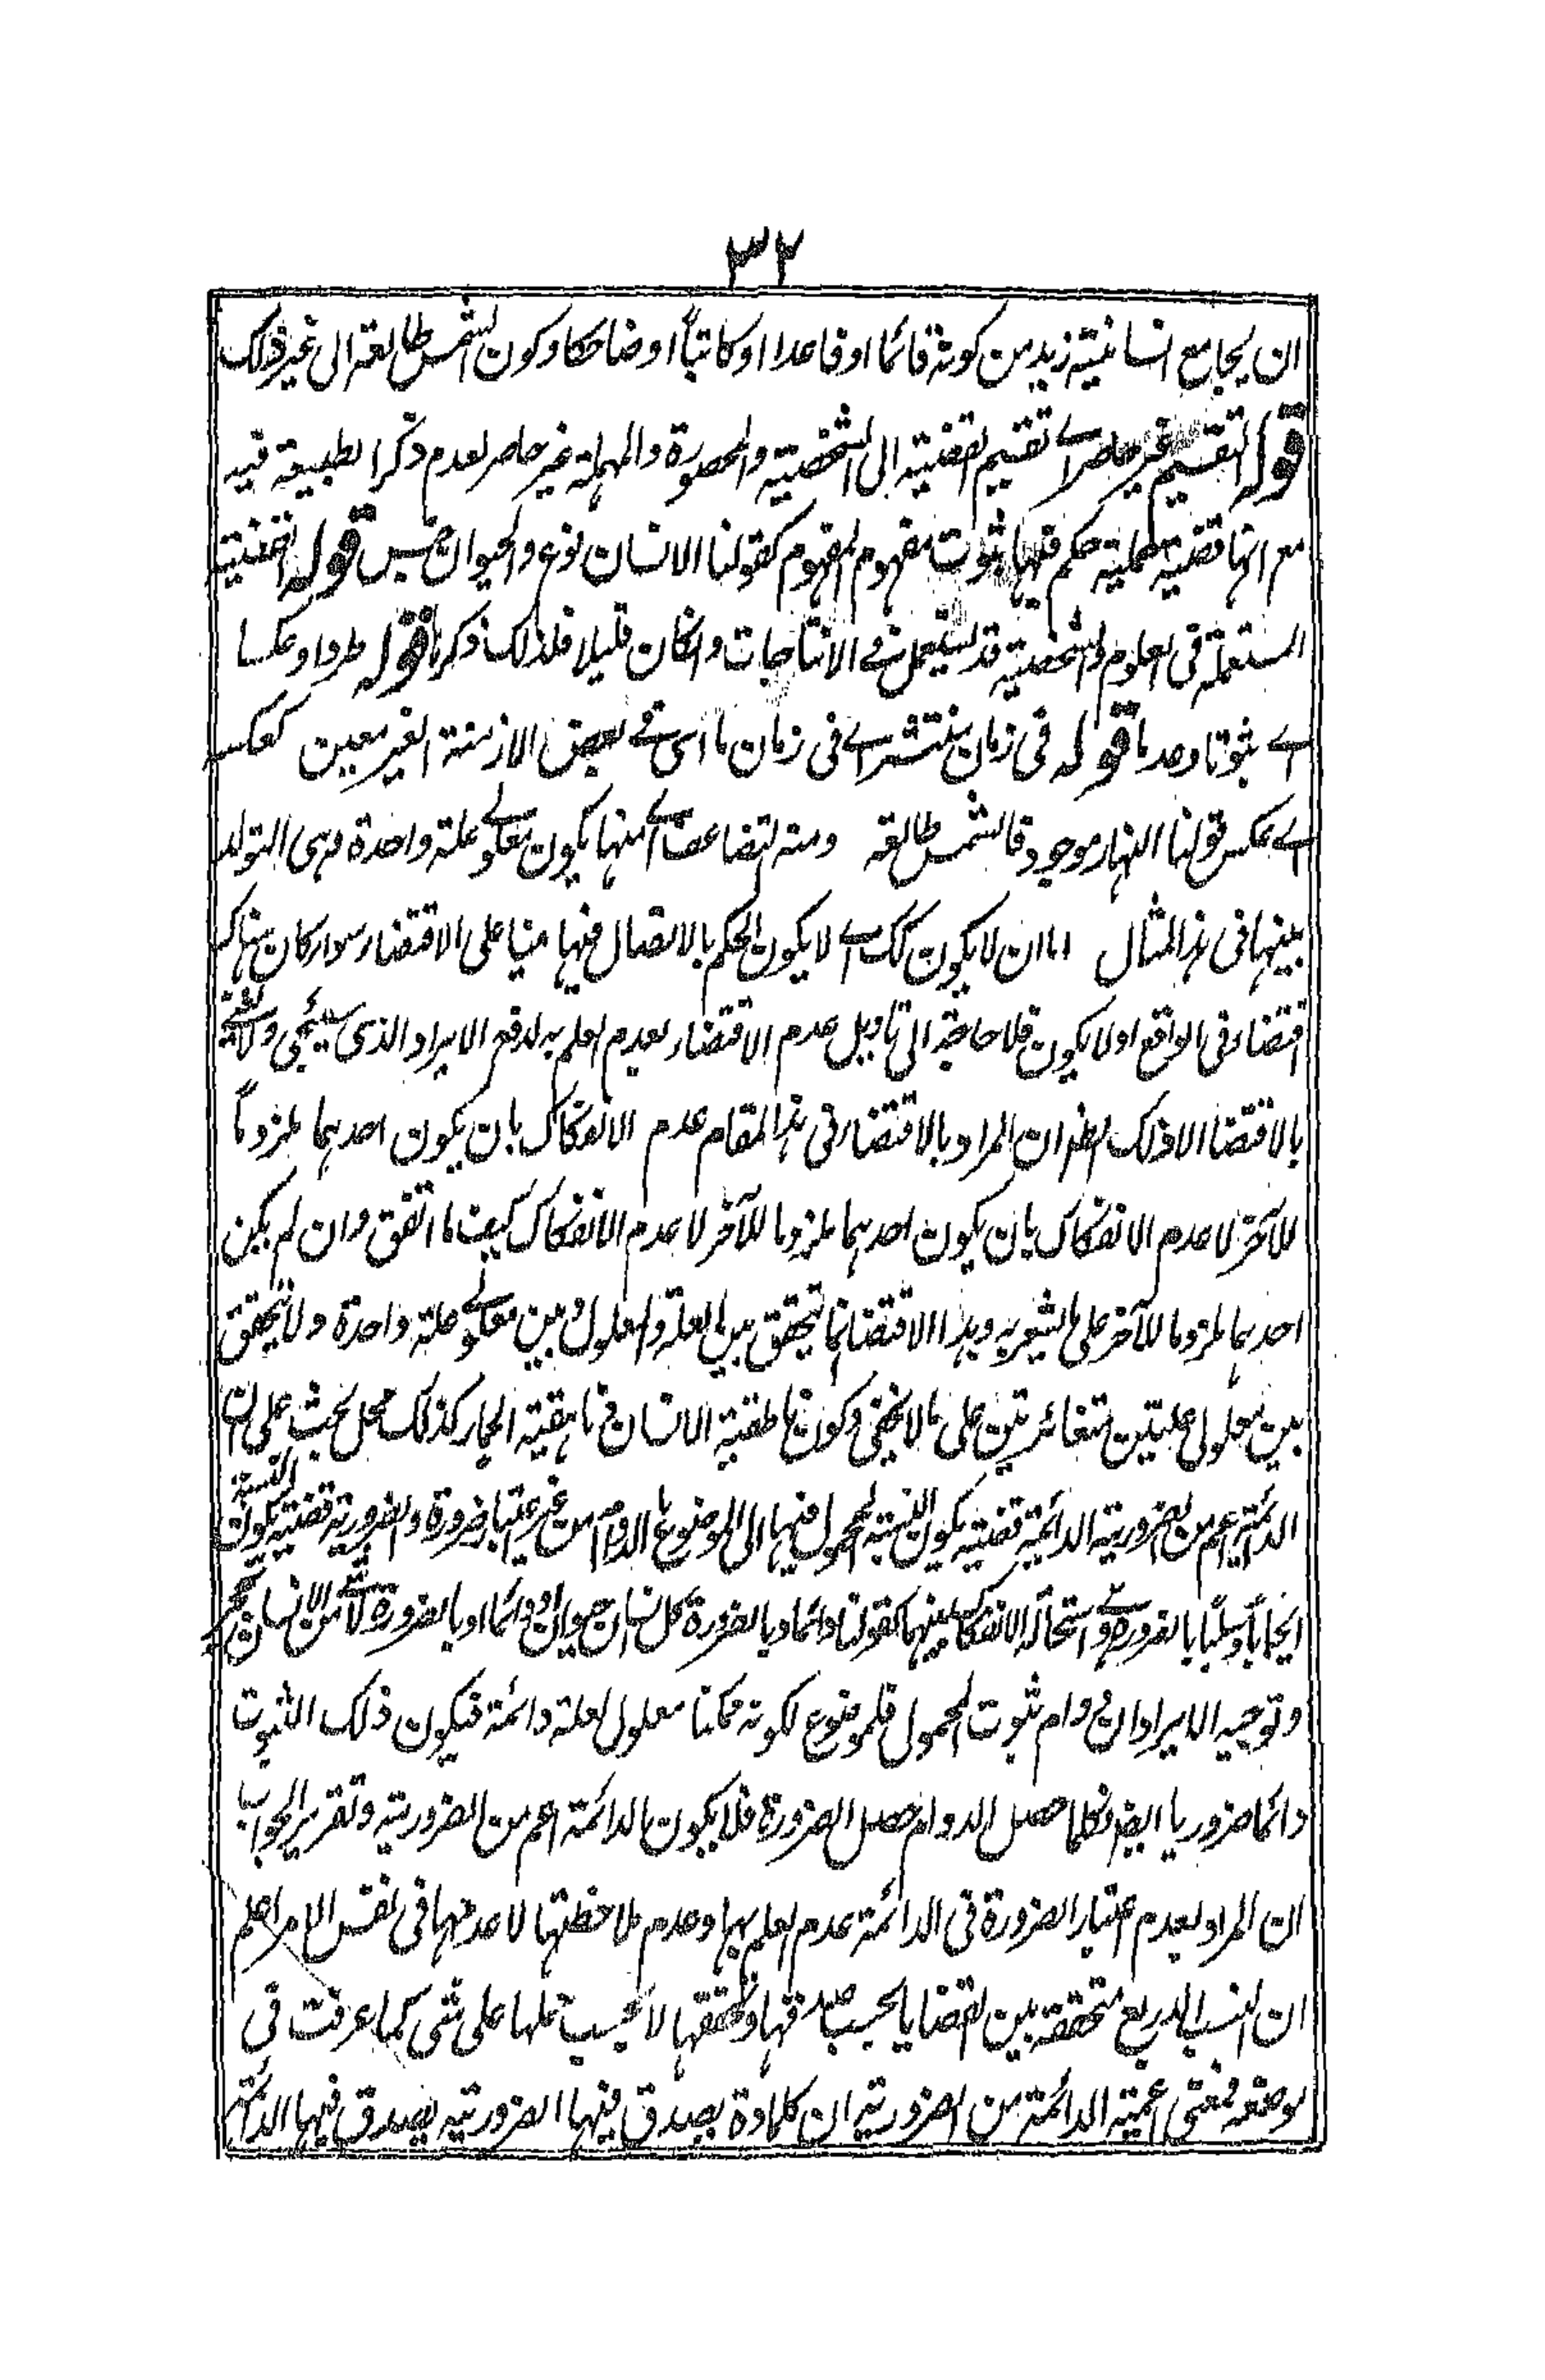 ٣٢
ان يجامع انسانية زيد من كونه قائما او قاعدا او كاتباً او ضاحكا وكون الشمس طالعة الى غير ذلك
قوله التقسيم غير حاصر اے تقسيم القضية الى الشخصية والمحصورة والمهملة غير حاصر لعدم ذكر الطبيعة فيه
مع انها قضية حملية حكم فيها بثبوت مفهوم لمفهوم كقولنا الانسان نوع والحيوان جنس قوله القضية
المستعملة فى العلوم والشخصية قد يستعمل فى الانتاجات وانكان قليلا فلذلك ذكرها قوله طردا وعكسا
اے ثبوتا وعدما قوله فى زمان منتشر اے فى زمان ما اى فى بعض الازمنة الغير معين كعكس
اے عكس قولنا النهار موجود فالشمس طالعة ومنه التضائف اے منها يكون معلولے علة واحدة وهى التولد
بينهما فى هذا المثال اما ان لا يكون كك اے لا يكون الحكم بالاتصال فيها مبنيا على الاقتضاء سواء كان هناك
اقتضاء فى الواقع اولا يكون فلا حاجة الى تاويل عدم الاقتضاء بعدم العلم به لدفع الايراد الذى سيجئ ولا نعنے
بالاقتضا الا ذلك اعلم ان المراد بالاقتضاء فى هذا المقام عدم الانفكاك بان يكون احدهما ملزوماً
للآخر لا عدم الانفكاك بان يكون احدهما ملزوما للآخر لا عدم الانفكاك كيف ما اتفق وان لم يكن
احدهما ملزوما للآخر على ما يشعر به وهذا الاقتضا انما تحقق بين العلة والمعلول وبين معلولے علة واحدة ولا يتحقق
بين معلولى علتين متغائرتين على ما لا يخفى وكون ناطقية الانسان وناهقية الحمار كذلك محل بحث على ان
الدائمة اعم من الضرورية الدائمة قضية يكون النسبة المحمول فيها الى الموضوع بالدوام من غير اعتبار ضرورة والضرورية قضية يكون النسبة
ايجاباً وسلباً بالضرورة اے استحالة الانفكاك بينهما كقولنا دائما وبالضرورة كل انسان حيوان ودائما او بالضرورة لا شئ من الانسان بحجر
وتوجيه الايراد ان دوام ثبوت المحمول للموضوع لكونه ممكنا معلول لعلة دائمة فيكون ذلك الثبوت
دائما ضروريا ايضا فكلما حصل الدوام حصل الضرورة فلا يكون الدائمة اعم من الضرورية وتقرير الجواب
ان المراد بعدم اعتبار الضرورة فى الدائمة عدم العلم بها وعدم ملاحظتها لا عدمها فى نفس الامر اعلم
ان النسب الاربع متحققة بين القضايا بحسب صدقها وتحققها لا بحسب حملها على شى كما عرفت فى
موضعه فمعنى اعمية الدائمة من الضرورية ان كلمادة يصدق فيها الضرورية يصدق فيها الدائمة